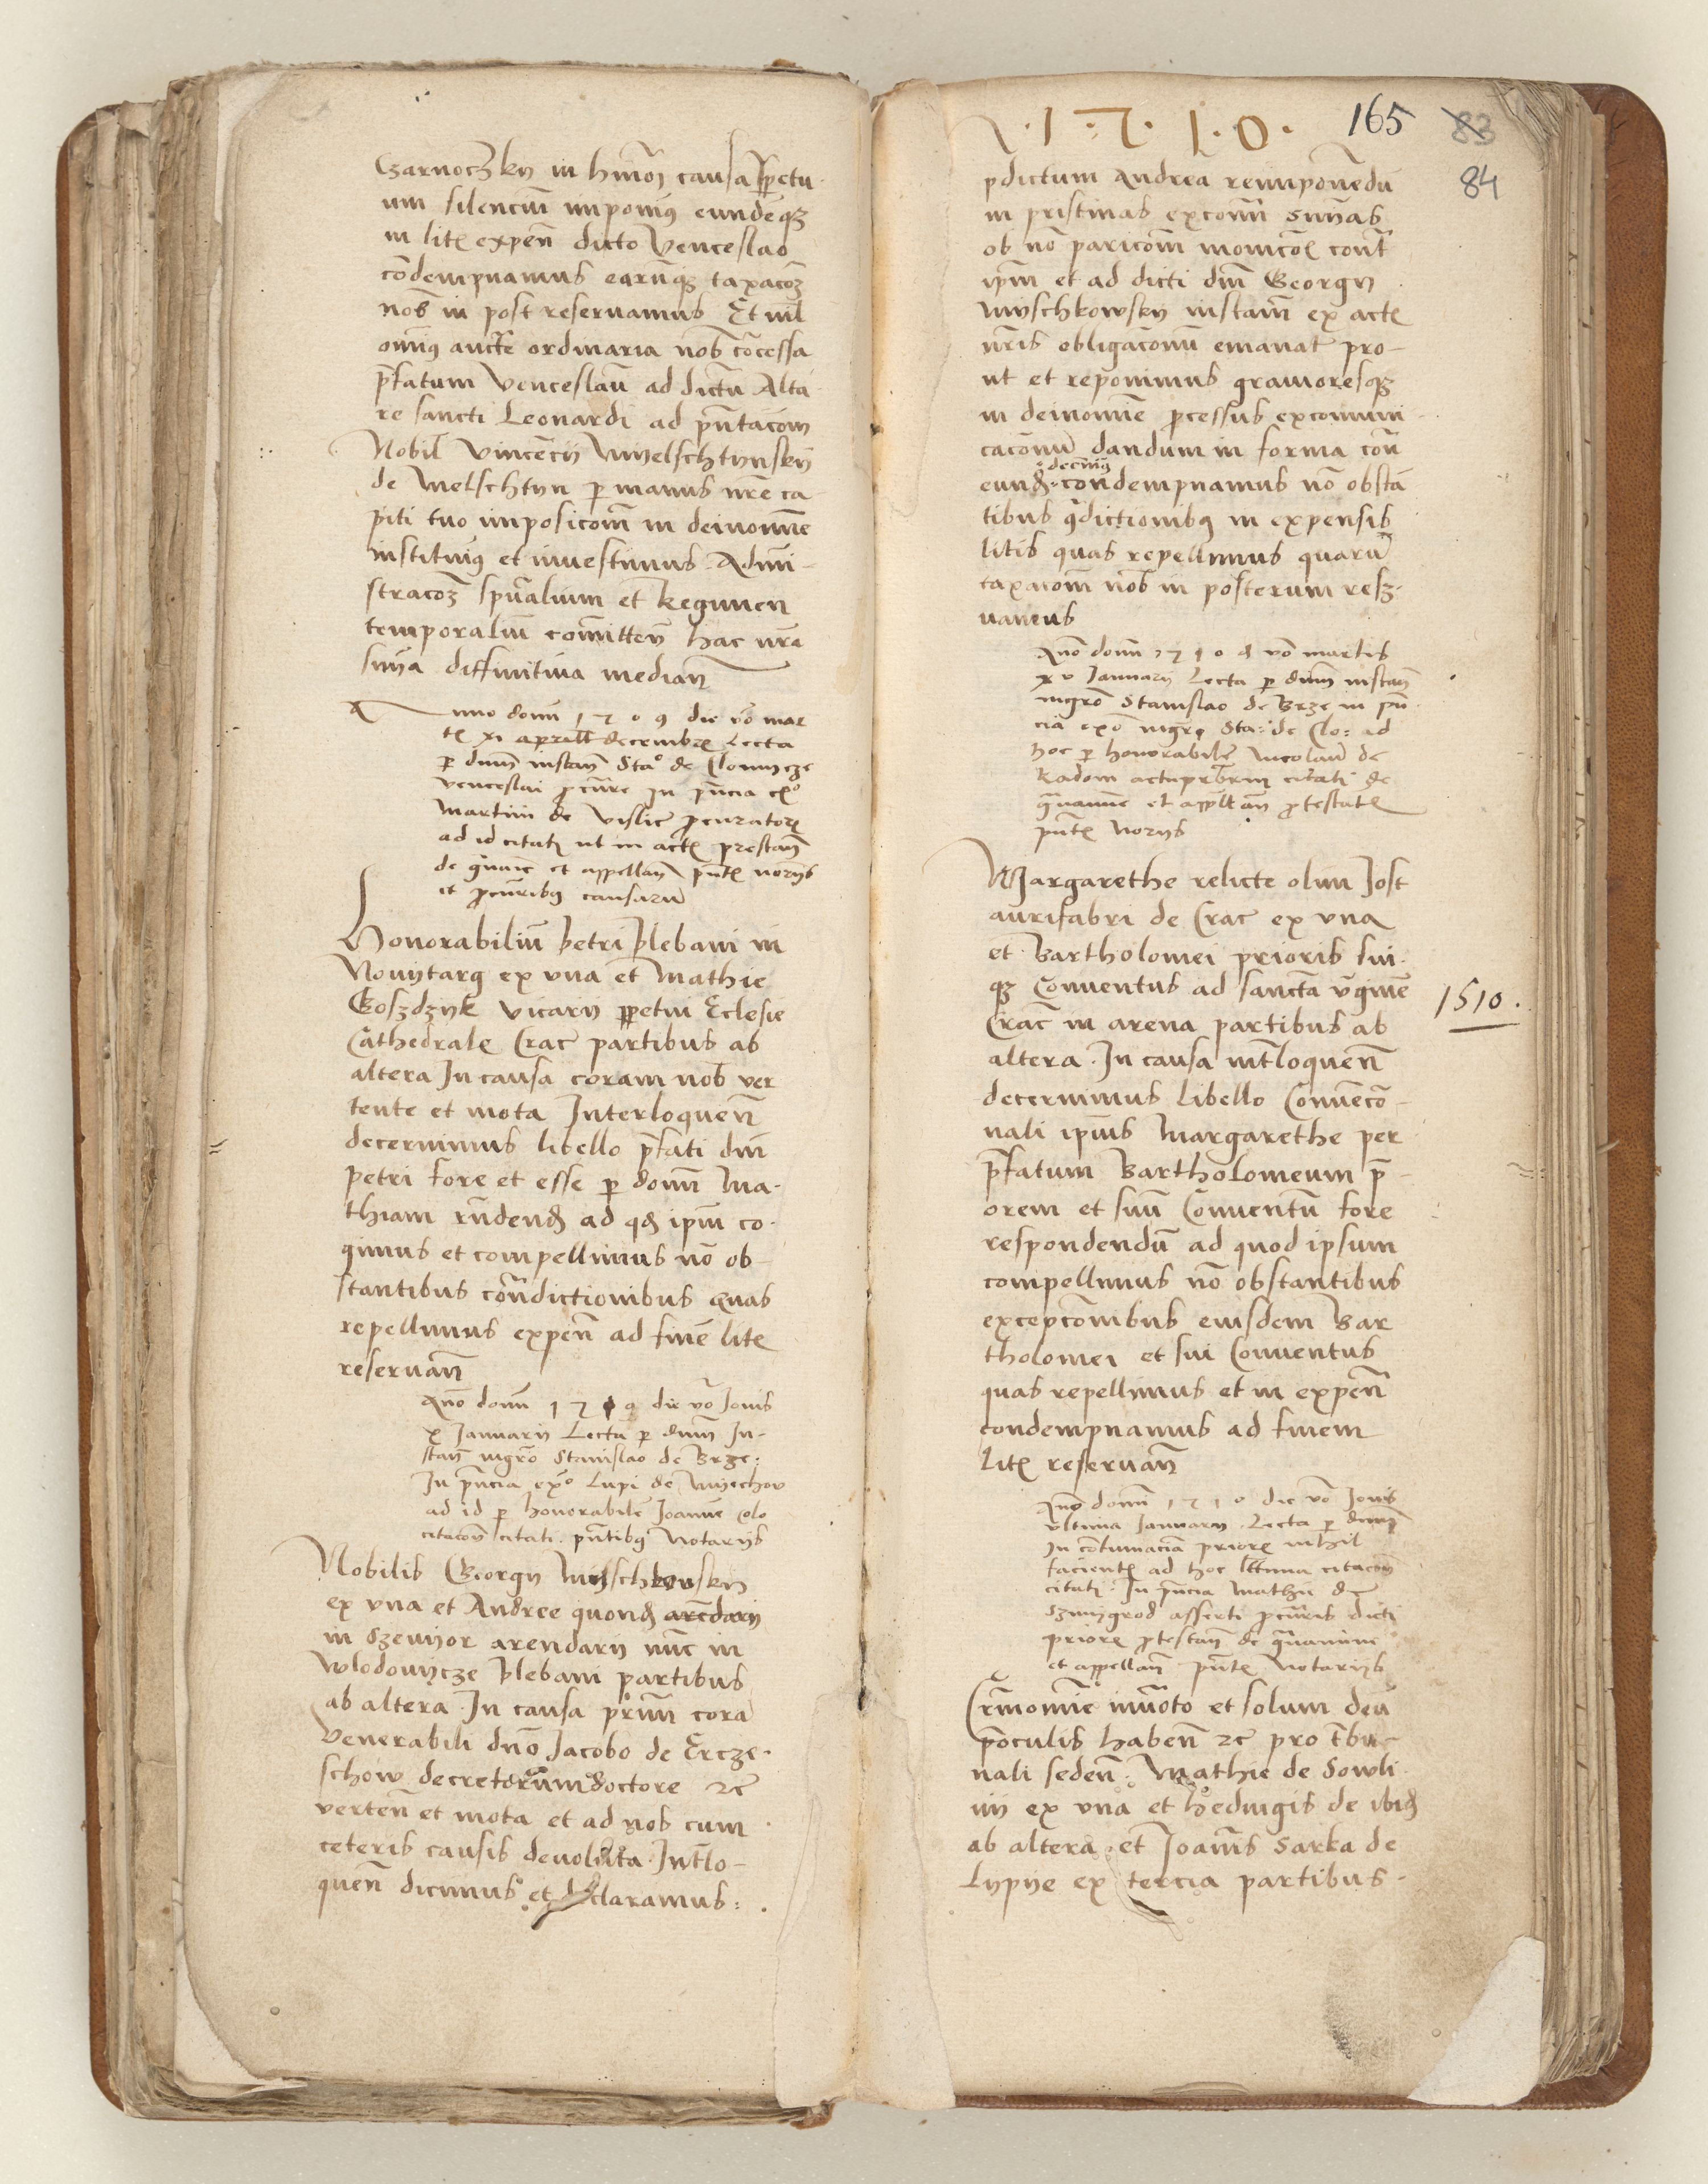 Czarnoczky in hmoi causa ppetu
um silencium imponimus eundemqz
in litis expen dicto Venceslao
condempnamus earumqz taxacoem
nobis in post reservamus Et nil
omnimus aucte ordinaria nob concessa
prefatum Venceslaum ad dictum Alta
re sancti Leonardi ad pntacom
Nobil Vincencii Myelschtynsky
de Melschtyn per manus nre ca
piti tuo imposicom in dei nomine
instituimus et investimus Admi
stracoem spualium et Regimen
temporalium comitten hac nra
sinia diffinitiva median
Anno domi 1509 die vo mar
tis xi aprill decembris Lecta
per dnum instan Stao de Clomycze
Venceslai pcure In pncia exo
Martini de Vislic procuratoris
ad id citati ut in actis prestan
de gravaie et appellan pntis notarys
et pcuribus causarum
Honorabilium Petri Plebani in
Novytarg ex una et Mathie
Goszdzyk vicarii ppetui Eclesie
Cathedralis Crac partibus ab
altera In causa coram nob ver
tente et mota Interloquen
decernimus libello prefati dni
petri fore et esse per domi Ma
thiam rndend ad qd ipm co
gimus et compellimus no ob
stantibus contradictionibus quas
repellimus expen ad finem litis
reservan
Ano domi 1510 die vo Jovis
x Januarii Lecta per dnum In
stan mgro Stanislao de Brze:
In pncia exo Lupi de Myechov
ad id per honorabilem Joannem Colo
citacom citati pntibus Notarys
Nobilis Georgy Myschkowsky
ex una et Andree quond arendary
in Szevyor arendary nunc in
Wlodovycze Plebani partibus
ab altera In causa primum cora
Venerabili dno Jacobo de Ercze
schow decretorum doctore etc
verten et mota et ad nos cum
ceteris causis devoluta Intlo
quen dicimus et declaramus
1510 165 83
84
pdictum Andrea reimponendum
in pristinas excomi sumas
ob no paricom monicois cont
ipm et ad dicti dni Georgy
Myschkowsky instam ex actis
nris obligacomu emanat pro
ut et reponimus gravioresqz
in dei nomine pcessus excomuni
cacionum dandum in forma com
decimus
eund condempnamus no obstan
tibus contradictionibus in expensis
litis quas repellimus quarum
taxacom nob in posterum resz
vamus
Ano domi 1510 d vo martis
xv Januarii Lecta per dnum instan
mgro Stanislao de Brze in pn
cia exo mgri Sta: de Clo: ad
hoc per honorabilem Nicolaum de
Radom actu prbrm citati de
gravamine et appellan protestatis
pntis Norys
Margarethe relicte olim Jost
aurifabri de Crac ex una
et Bartholomei prioris sui
qz Conventus ad sancta virginem
1510.
Crac in arena partibus ab
altera In causa intloquen
decernimus Libello Convenco
nali ipius Margarethe per
prefatum Bartholomeum pri
orem et suum Conventum fore
respondendum ad quod ipsum
compellimus no obstantibus
excepcionibus eiusdem Bar
tholomei et sui Conventus
quas repellimus et in expen
condempnamus ad finem
litis reservan
Ano domi 1510 die vo Jovis
ultima Januarii Lecta per dnum
In contumaciam prioris nihil
facientis ad hoc litima citacom
citati In pncia Mathie de
Szmygrod asserti pcuris dicti
prioris protestan de gravamine
et appellan pntis Notarys
Crmonie invoto et solum deum
pre oculis haben etc pro tribu
nali seden Mathie de Sowli
ny ex una et Hedvigis de ibid
ab altera et Joannis Sarka de
Lypye ex tercia partibus